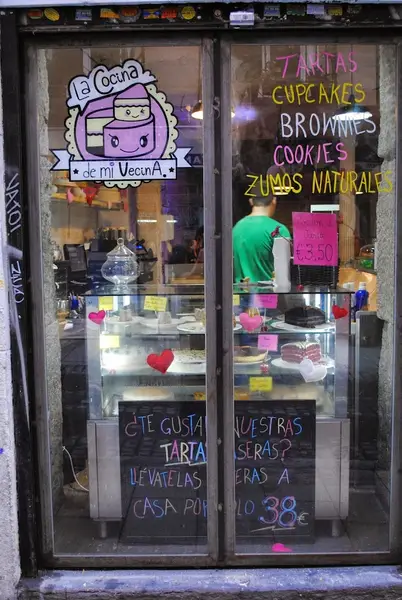 La Cocina
de mi Vecina.
TARTAS
CUPCAKES
BROWNIES
COOKIES
ZUMOS NATURALES
€3,50
¿TE GUSTAN NUESTRAS
TARTAS CASERAS?
LLÉVATELAS ENTERAS A
CASA POR SOLO 38€